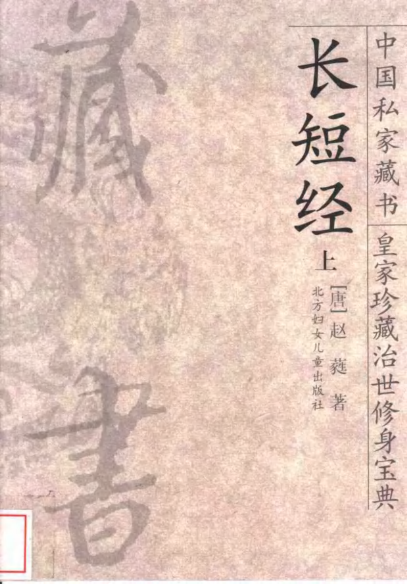 中国私家藏书
皇家珍藏治世修身宝典
长短经
上
[唐]赵蕤 著
北方妇女儿童出版社
藏書